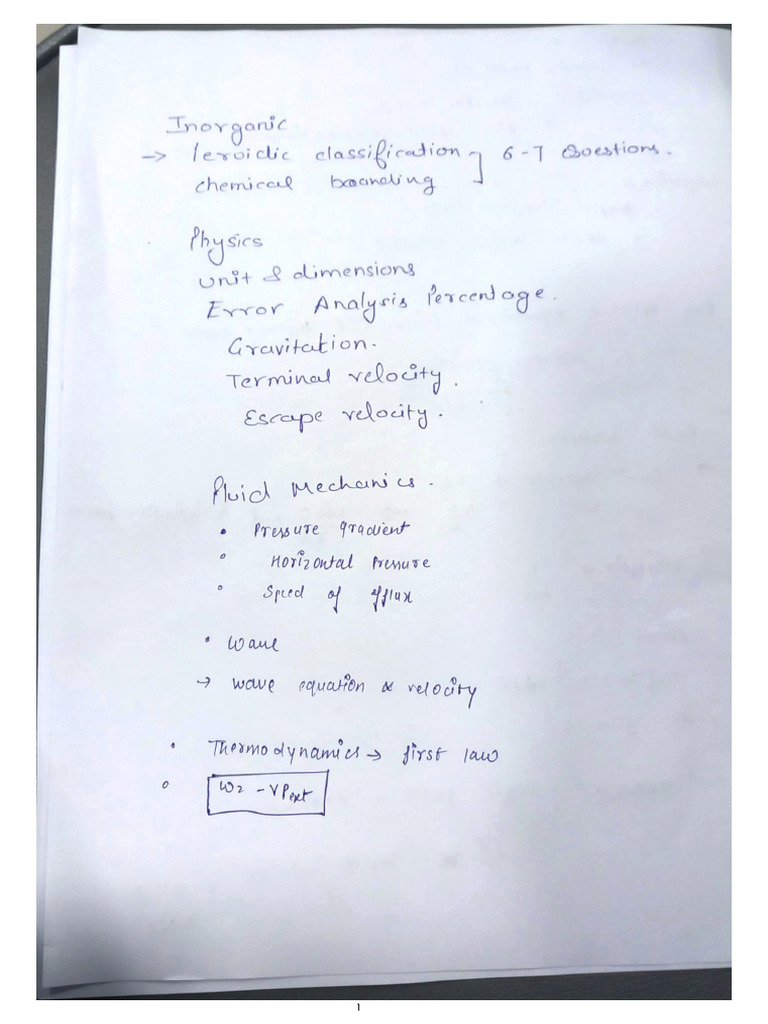 Inorganic.
→ Peroidic classification ] 6-7 Questions.
chemical boanding
Physics
unit & dimensions
Error Analysis Percentage.
Gravitation.
Terminal velocity.
Escape velocity.
Fluid Mechanics.
• Pressure gradient
• Horizontal Pressure
• Speed of efflux
• Wave
→ wave equation & velocity
• Thermodynamics → first law
• W= -VPext
1